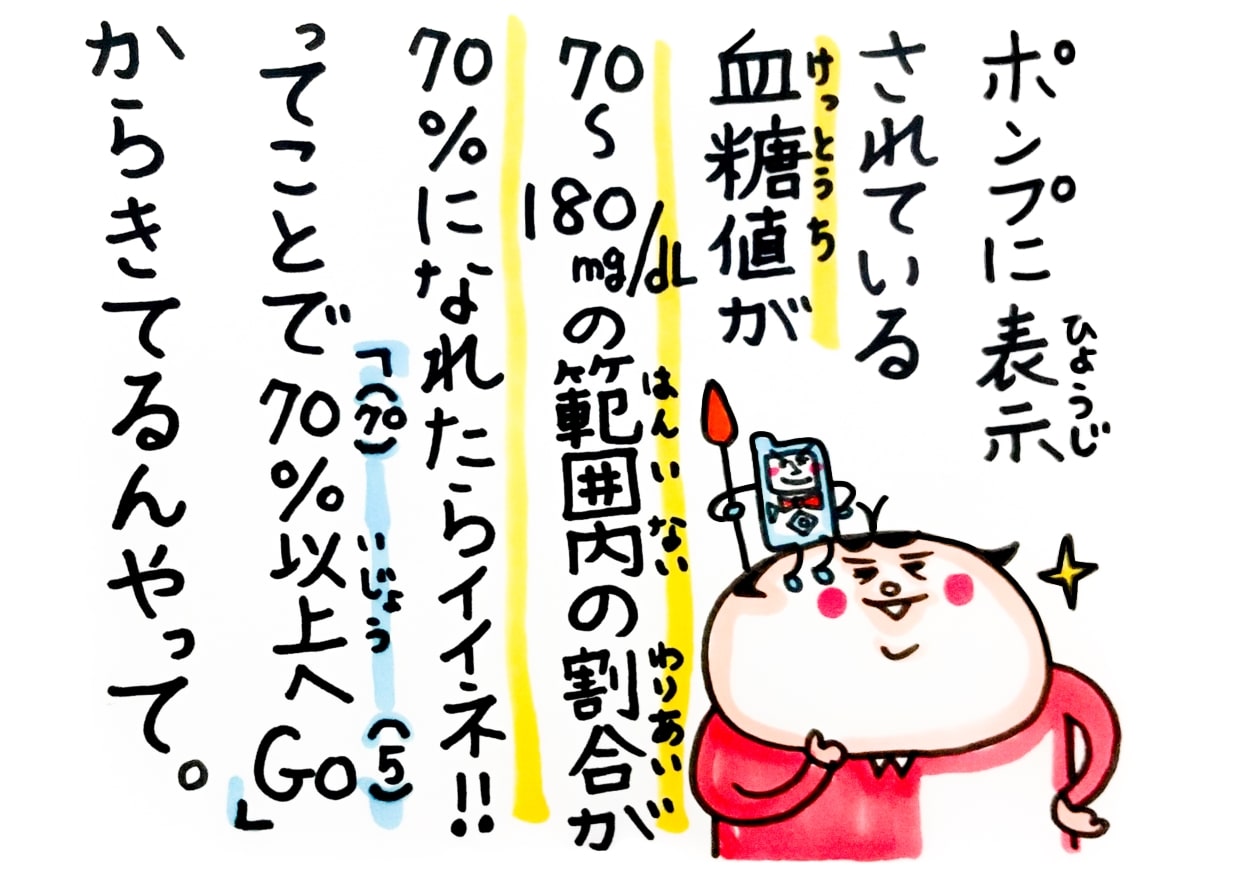 ポンプに表示
ひょうじ
されている
血糖値が
けっとうち
70〜180mg/dLの範囲内の割合が
はんいない わりあい
70%になれたらイイネ!!
ってことで「70%以上へGo」
(70) いじょう (5)
からきてるんやって。